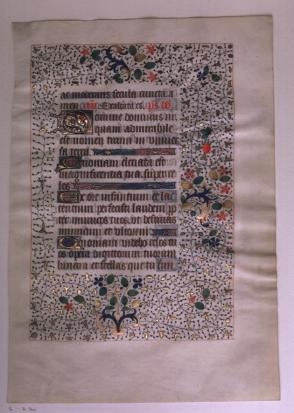 ac modulans secula cuncta. a
men. Exultate es. ps
Domine dominus nr̄
quam admirabile
est nomen tuum in univer
sa terra
Quoniam elevata est
magnificentia tua super ce
los
Ex ore infantium et lac
tentium perfecisti laudem pp
ter inimicos tuos ut destruas
inimicum et ultorem
Quoniam videbo celos tu
os opera digitorum tuorum
lunam et stellas que tu fun